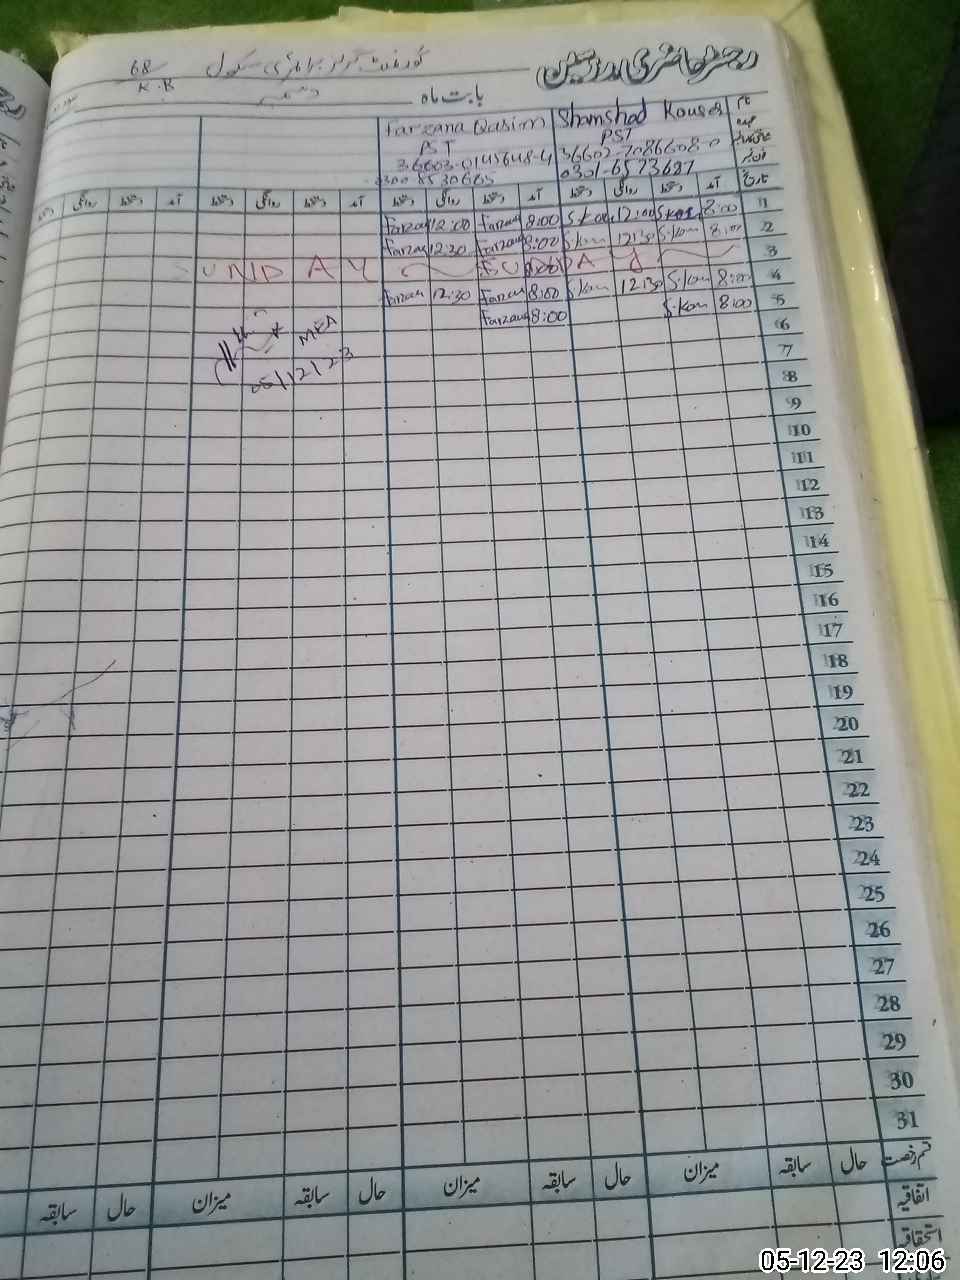 رجسٹر حاضری مدرسین
گورنمنٹ گرلز پرائمری سکول 68
K.B
بابت ماہ دسمبر
نام Shamshad Kouser Farzana Qasim
عہدہ PST PST
36602-7086608-0
0301-6573687
تاریخ آمد دستخط روانگی دستخط آمد دستخط روانگی دستخط آمد دستخط روانگی دستخط آمد دستخط روانگی دستخط
1 8:00 S.Kou 12:00 S.Kou 8:00 Farzana 12:00 Farzana
2 8:00 S.Kou 12:30 S.Kou 8:00 Farzana 12:30 Farzana
3 SUNDAY SUNDAY
4 8:00 S.Kou 12:30 S.Kou 8:00 Farzana 12:30 Farzana
5 8:00 S.Kou 8:00 Farzana
6
MEA
05/12/23
7
8
9
10
11
12
13
14
15
16
17
18
19
20
21
22
23
24
25
26
27
28
29
30
31
قسم رخصت حال سابقہ میزان حال سابقہ میزان حال سابقہ میزان حال سابقہ
اتفاقیہ
استحقاقیہ
05-12-23 12:06